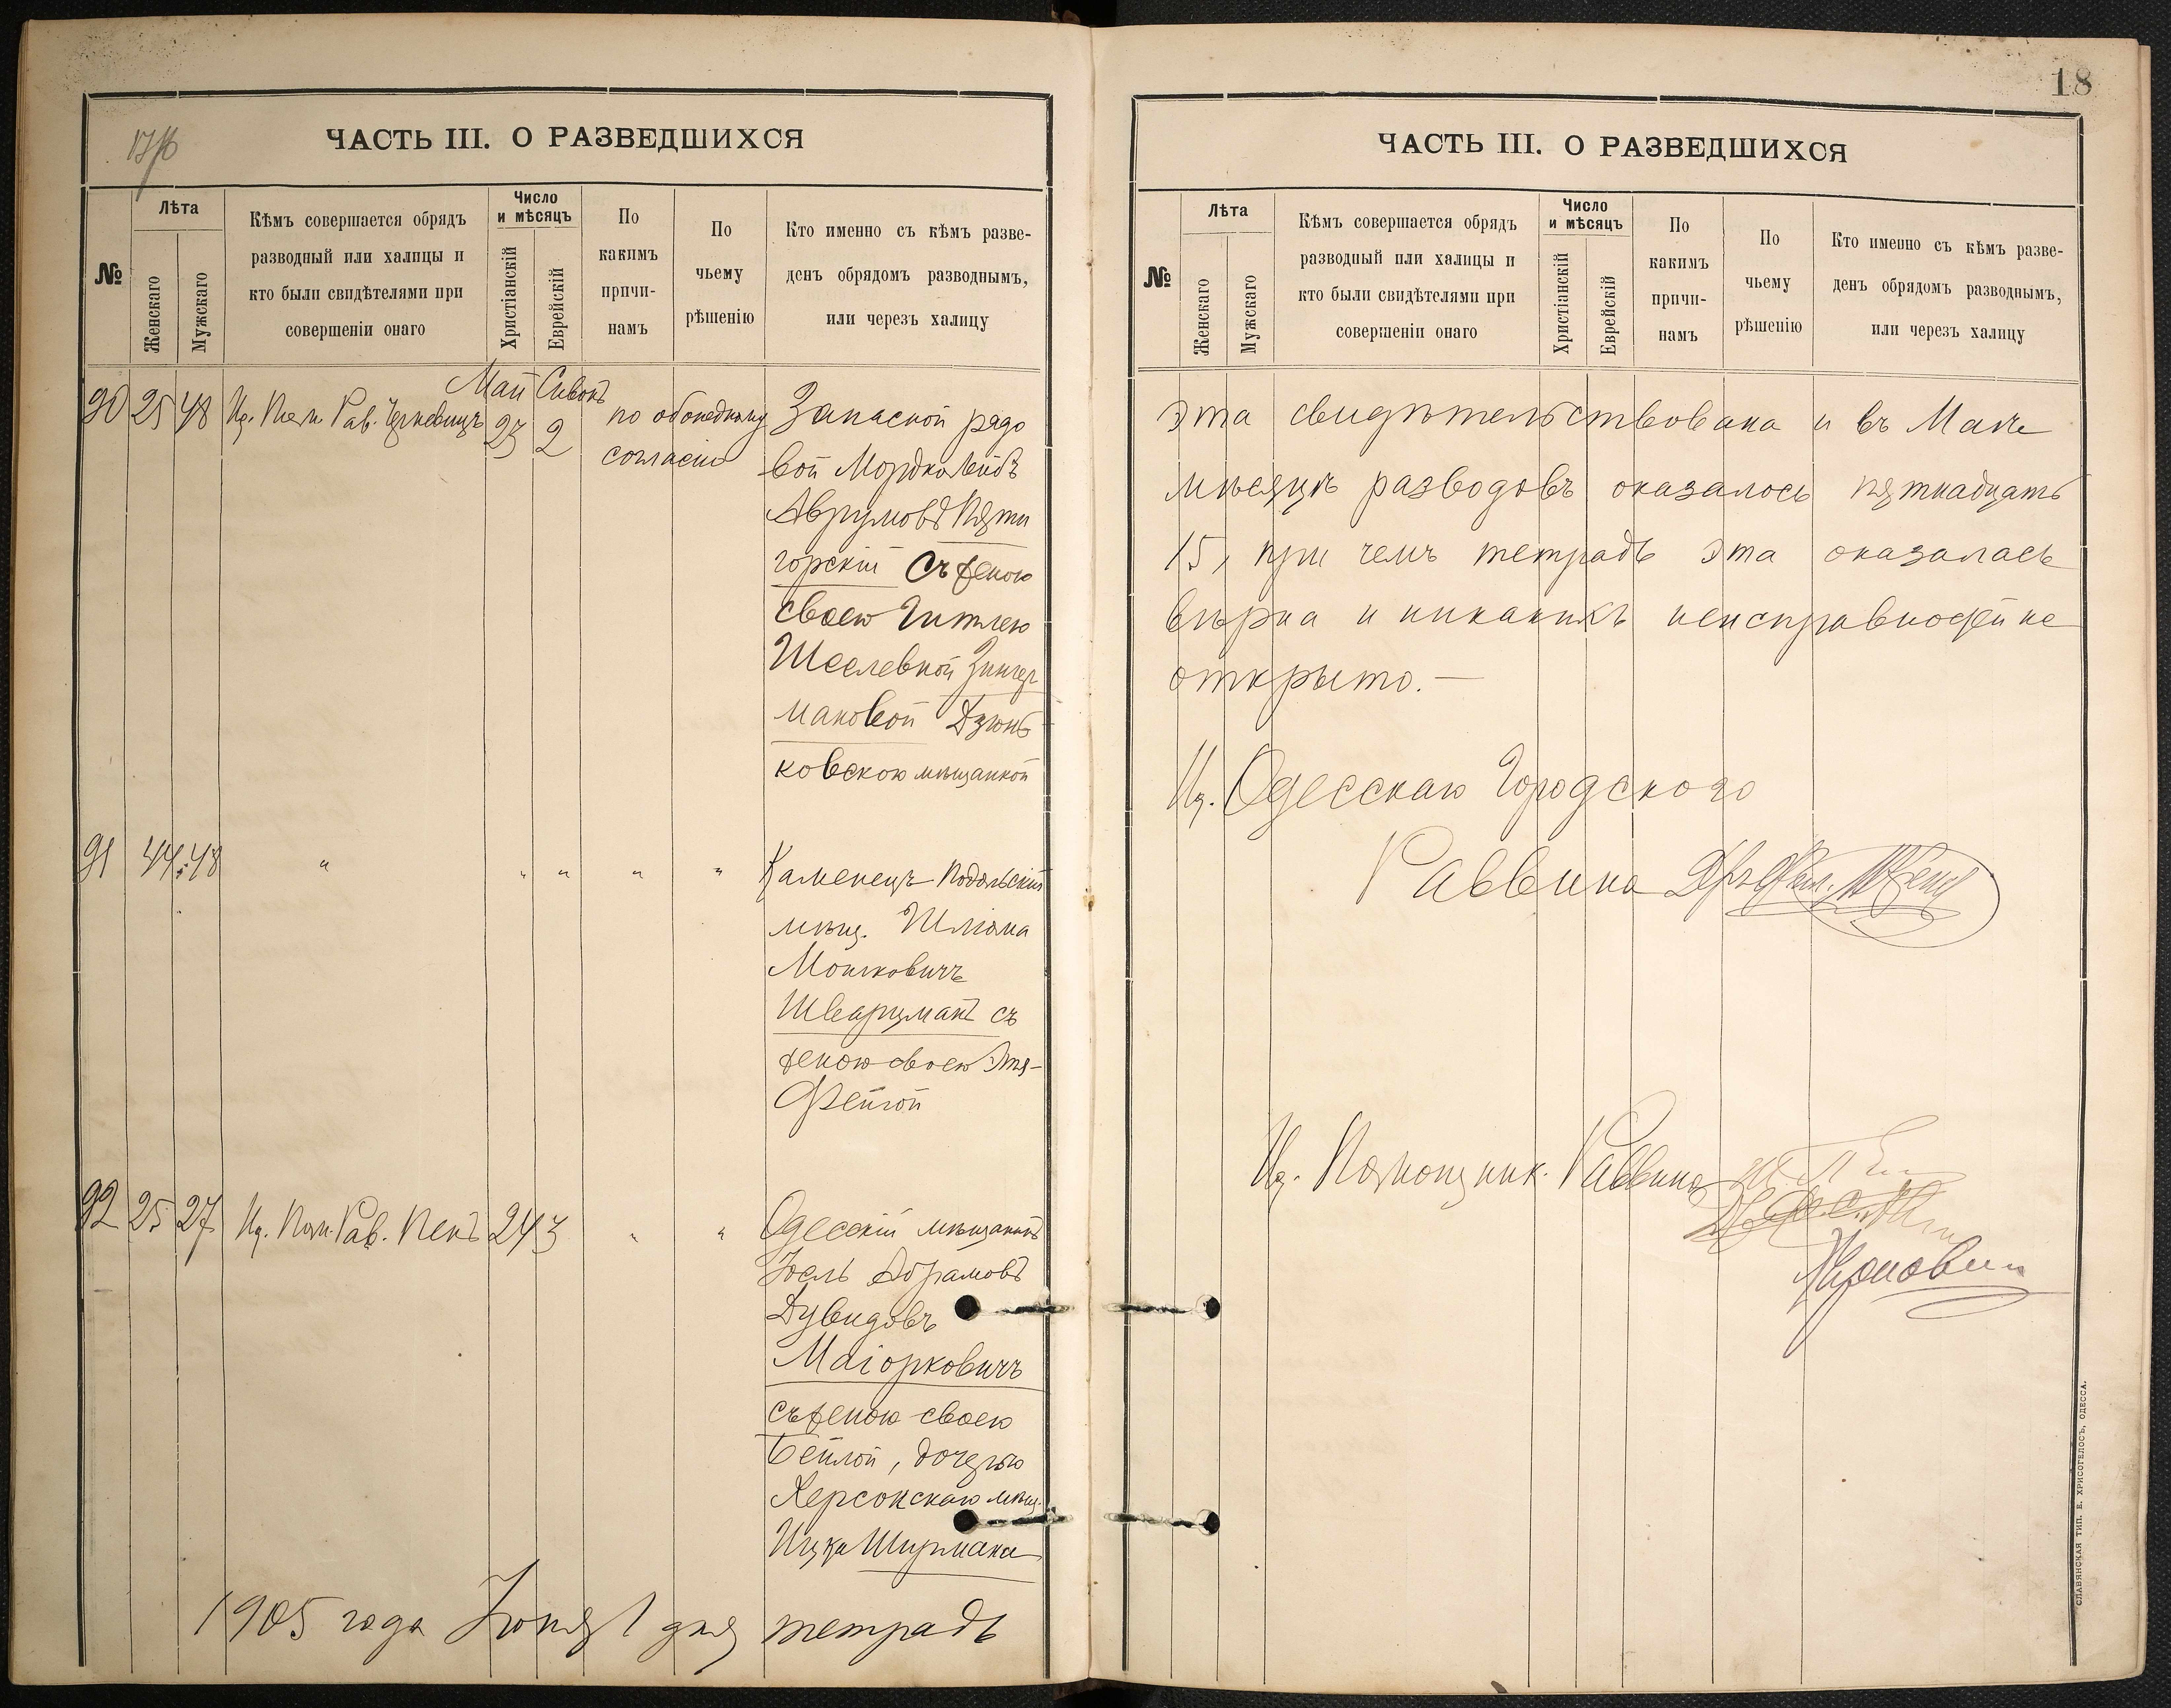 ЧАСТЬ III. О РАЗВЕДШИХСЯ
№
Лѣта
Женскаго
Мужскаго
Кѣмъ совершается обрядъ
разводный или халицы и
кто были свидѣтелями при
совершеніи онаго
Число
и мѣсяцъ
Христіанскій
Еврейскій
По
какимъ
причи-
намъ
По
чьему
рѣшенію
Кто именно съ кѣмъ разве-
денъ обрядомъ разводнымъ,
или черезъ халицу
Май Сивонъ
90 25 48 Ид. Пом. Рав. 23 2 по обоюдному
согласію
Запасной рядо
вой Мордко Лейбъ
Аврумовъ Пяти
горскій съ женою
своею Гитлею
Шселевной Зингер
мановой Дзюнь
ковскою мѣщанкой
91 44 48 " " " " "
Каменецъ-Подольскій
мѣщ. Шліома
Мошковичъ
Шварцманъ съ
женою своею Эття-
Фейгой
92 25 27 Ид. Пом. Рав. Пенъ 24 3 " "
Одесскій мѣщанинъ
Іосль Абрамовъ
Дувидовъ
Маіорковичъ
съ женою своею
Бейлой, дочерью
Херсонскаго мѣщ.
Ицка Шурмана
1905 года Іюня 1 дня тетрадь
18
ЧАСТЬ III. О РАЗВЕДШИХСЯ
№
Лѣта
Женскаго
Мужскаго
Кѣмъ совершается обрядъ
разводный или халицы и
кто были свидѣтелями при
совершеніи онаго
Число
и мѣсяцъ
Христіанскій
Еврейскій
По
какимъ
причи-
намъ
По
чьему
рѣшенію
Кто именно съ кѣмъ разве-
денъ обрядомъ разводнымъ,
или черезъ халицу
эта свидѣтельствована и въ Маѣ
мѣсяцѣ разводовъ оказалось пятнадцать
15, при чемъ тетрадь эта оказалась
вѣрна и никакихъ неисправностей не
открыто.—
Ид. Одесскаго Городского
Раввина
Ид. Помощник. Раввина
СЛАВЯНСКАЯ ТИП. Е. ХРИСОГЕЛОСЪ, ОДЕССА.